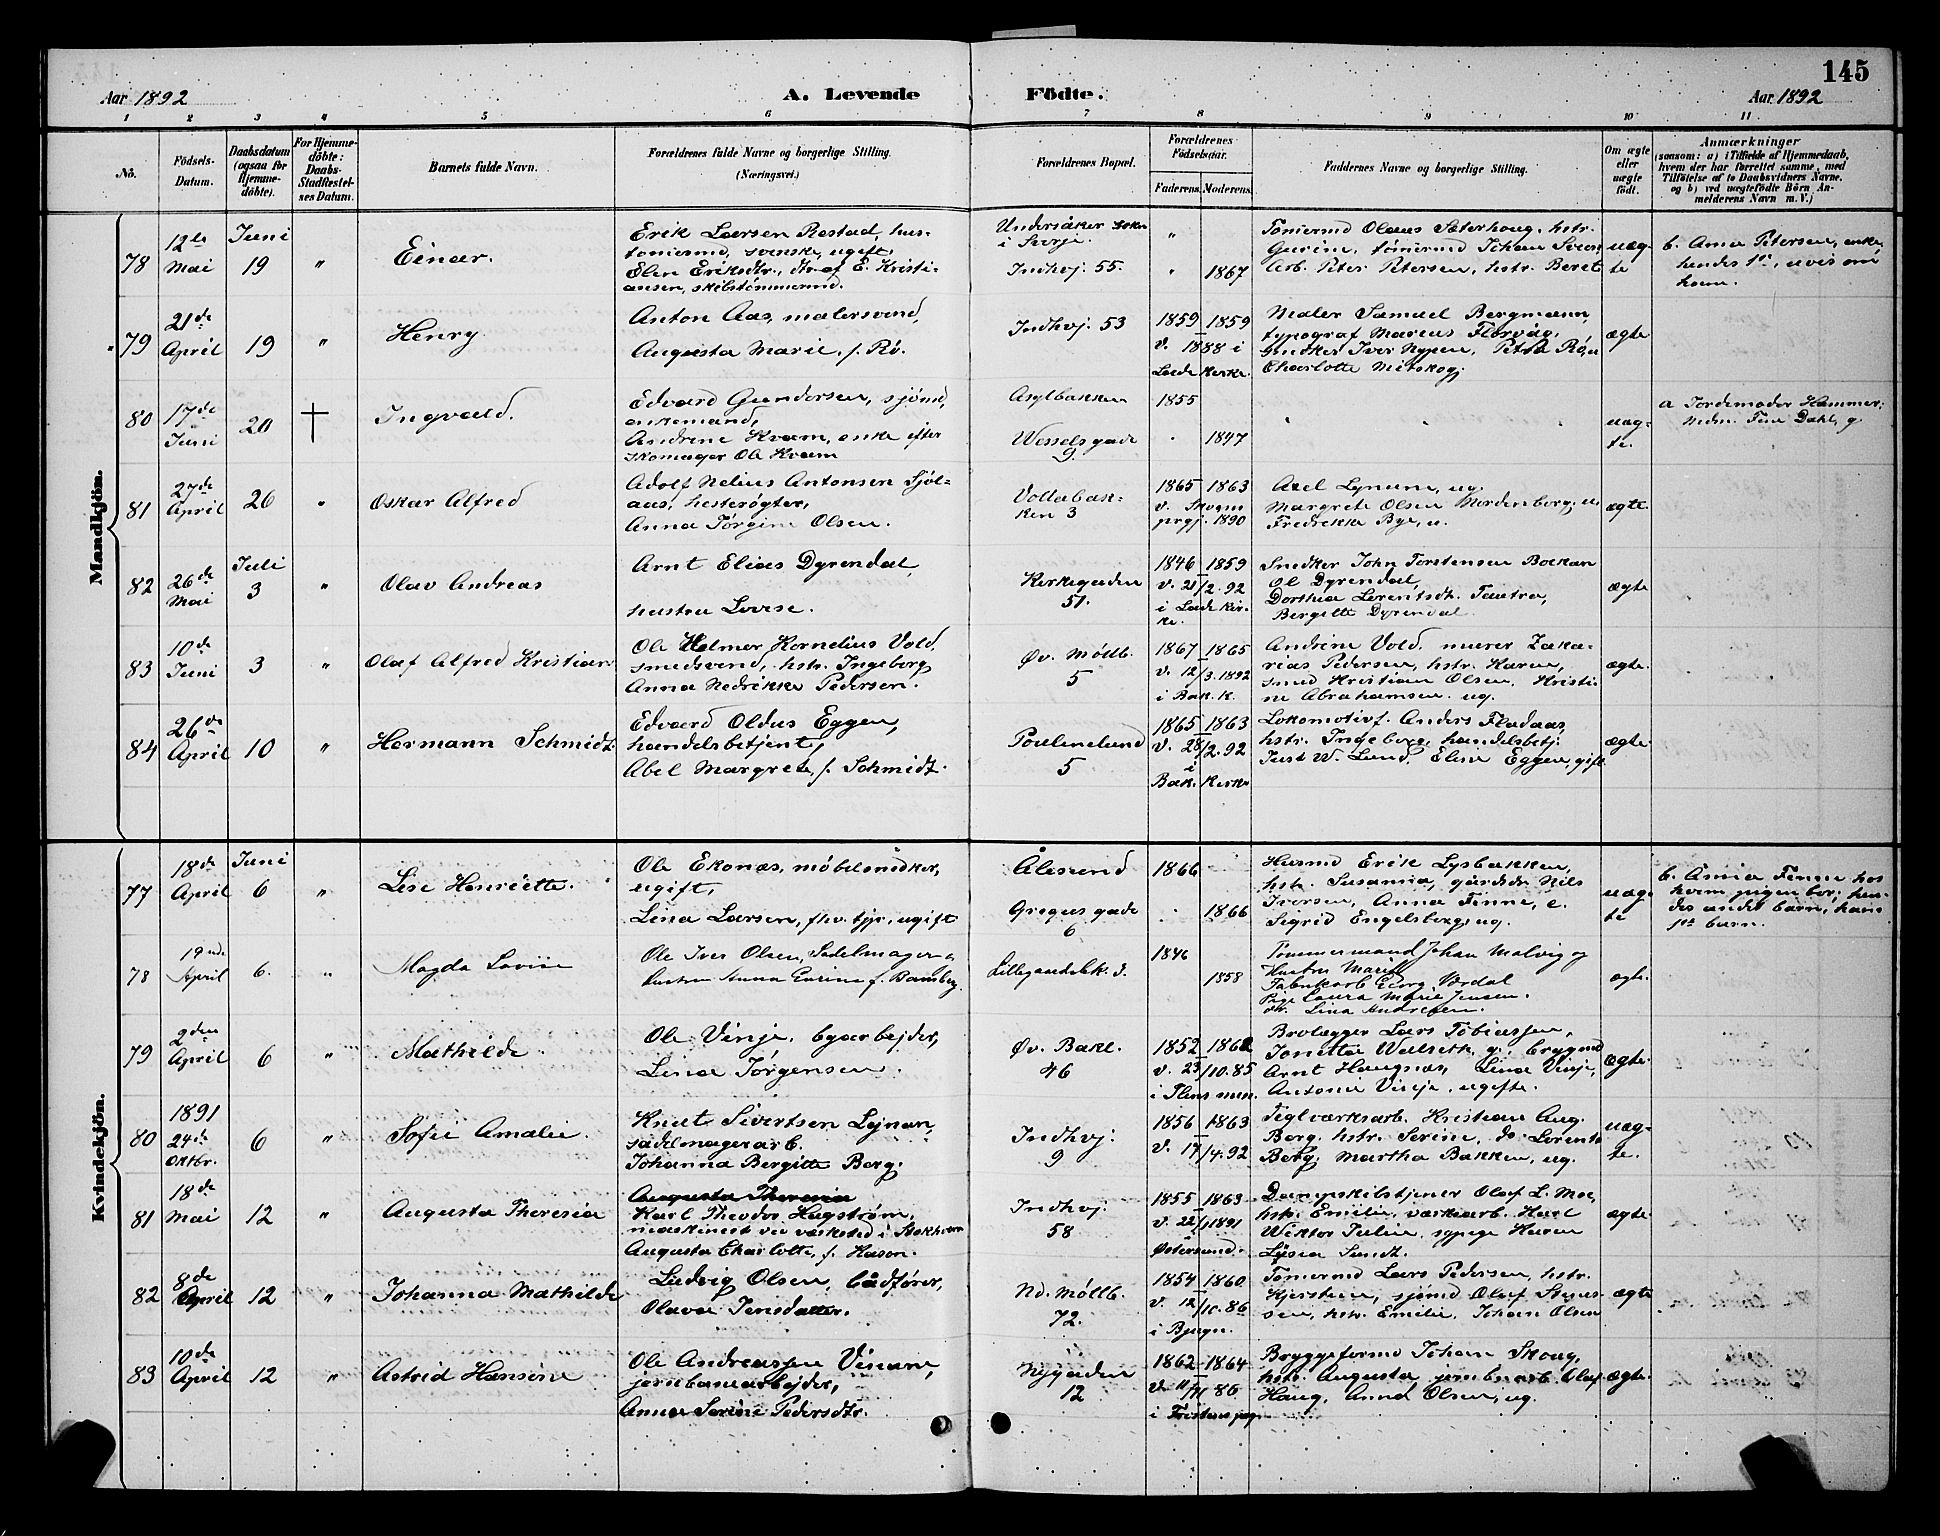 145
Aar 1892
A. Levende
Födte.
Aar 1892
1 2 3 4 5 6 7 8 9 10 11
No.
Födsels-
Datum.
Daabsdatum
(ogsaa for
Hjemme-
döbte).
For Hjemme-
döbte:
Daabs-
Stadfæstel-
ses Datum.
Barnets fulde Navn.
Forældrenes fulde Navne og borgerlige Stilling.
(Næringsvei.)
Forældrenes Bopæl.
Forældrenes
Födselsaar.
Faderens. Moderens.
Faddernes Navne og borgerlige Stilling.
Om ægte
eller
uægte
födt.
Anmærkninger
(saasom: a) i Tilfælde af Hjemmedaab,
hvem der har forrettet samme, med
Tilföielse af to Daabsvidners Navne,
og b) ved uægtefödte Börn An-
melderens Navn m. V.)
Mandkjön.
78
12te
Mai
Juni
19
"
Einar.
Erik Larsen Restad, hus-
tömermd, svenske, ugift
Elen Eriksdtr., dtr. af E. Kristi-
ansen, skibstömmermd.
Undersåker sokn
i Sverje
Indhvj. 55.
"
" 1867
Tömermd Olaus Säterhaug, hstr.
Gurine, tömermd Johan Sven
Arb. Peter Petersen, hstr. Beret
uæg-
te
b. Anna Petersen, enke,
hendes 1ste, uvis om
ham.
79
21de
April
19
"
Henry.
Anton Aas, malersvend,
Augusta Marie, f. Rö.
Indhvj. 53
1859 1859
v. 1888 i
Lade kirke.
Maler Samuel Bergmann,
typograf Marius Florvåg,
snedker Iver Nypen, Petra Rö, u
Charlotte Mitskogj.
ægte
80
17de
Juni
20
†
Ingvald.
Edvard Gundersen, sjömd,
enkemand,
Andrine Kvam, enke efter
skomager Ole Kvam
Asylbakken
Wesselsgade
9
1855
1847
uæg-
te.
a Jordemoder Hammer;
Nedm. Fine Dahl, g.
81
27de
April
26
"
Oskar Alfred
Adolf Nelius Antonsen Sjöl-
aas, hesterögter,
Anna Jörgine Olsen.
Vollabak-
ken 3
1865 1863
v. Skogn
prgj. 1890
Axel Lynum, ug.
Margrete Olsen Nordenborg, u
Fredrikke Bye, u.
ægte.
82
26de
Mai
Juli
3
"
Olav Andreas
Arnt Elias Dyrendal,
hustru Lovise.
Kirkegaden
51.
1846 1859
v. 21/2.92
i Lade kir-
ke.
Snedker John Torstensen Bockan
Ol Dyrendal,
Dorthea Lorentsdt. Tautra,
Bergitte Dyrendal.
ægte
83
10de
Juni
3
"
Olaf Alfred Kristian
Ole Helmer Kornelius Vold
smedsvend, hstr. Ingeborg
Anna Nedrikke Pedersen.
Øv. Möllb.
5
1867 1865
v. 12/3.1892
i Bak. k.
Andrine Vold, murer Zaka-
rias Pedersen, hstr. Karen,
smed Kristian Olsen, Kristi-
ne Abrahamsen. ug.
ægte.
84
26de
April
10
"
Hermann Schmidt.
Edvard Oldus Eggen,
handelsbetjent,
Abel Margrete, f. Schmidt.
Paulinelund
5
1865 1863
v. 28/2.92
i
Bak. kirke
Lokomotivf. Anders Fladaas,
hstr. Ingeborg, handelsbetj.
Just W. Lund, Elise Eggen, gift.
ægte.
Kvindekjön.
77
18de
April
Juni
6
"
Lise Henriette.
Ole Ekonæs, möbelsnedker,
ugift,
Lina Larsen, fhv. tjp., ugift
Ålesund
Gregus gade
6
1866
1866
Husmd Erik Lysbakken,
hstr. Susanna, gårdsdr. Nils
Iversen, Anna Finne, e.
Sigrid Engelsberg, ug.
uæg-
te
b. Anna Finne hos
hvem pigen bor; hen-
des andet barn, hans
1ste barn.
78
19nde
April
6.
"
Magda Lovise
Ole Iver Olsen, Sadelmager
hustru Anna Eurine f. Ramsberg.
Lillegaardsbk. 3.
1846
1858
Tømmermand Johan Malvig og
Hustru Marit
Fabrikarb Georg Verdal
Pige Laura Marie Jensen.
do. Lina Andresen.
ægte.
79
2den
April
6
"
Mathilde
Ole Vinje, byarbejder,
Lina Jörgensen.
Øv. Bakl.
46
1852 1862
v. 23/10.85
i Ilens men.
Brolægger Lars Tobiassen,
Jonetta Walseth, g., brygmd
Arnt Haugnæs, Lina Vinje,
Antonie Vinje, ugifte.
ægte.
80
1891
24de
Oktbr.
6
"
Sofie Amalie.
Knut Sivertsen Lejnan,
sadelmagerarb.
Johanna Bergitte Berg.
Indhvj.
9
1856 1863
v. 17/4.92
Teglværksarb. Kristian Aug.
Berg, hstr. Serine, do. Lorents
Berg, Martha Bakken, ug.
uæg-
te.
81
18de
Mai
12
"
Augusta Theresia
Augusta Theresia
Karl Theodor Hagström,
maskinist ved værksted i Stokholm
Augusta Charlotte, f. Hason.
Indhvj.
58
1855 1863
v. 22/ 1891
Østersund.
Dampskibstjener Olaf L. Moe,
hstr. Emilie, værksarb. Karl
Wiktor Julin, sypige Karen
Lysia Sundt.
ægte
82
8de
April
12
"
Johanna Mathilde
Ludvig Olsen, bådförer,
Olava Jensdatter.
Nd. Möllb.
72.
1854 1860
v. 12/10.86
i Bjugn.
Tömermd Lars Pedersen, hstr.
Kjersten, sjömd Olaf Simes-
sen, hstr. Emilie, Johan Olsen
ægte
83
10de
April
12
"
Astrid Hansine
Ole Andreassen Vinan,
jernbanearbejder,
Anna Serine Pedersdtr.
Nygaden
12
1862 1864
v. 86
i Frostens prg.
Bryggeformd Johan Skaug,
hstr. Augusta, jernbnarb. Olaf
Haug, Anna Olsen, ug.
ægte.